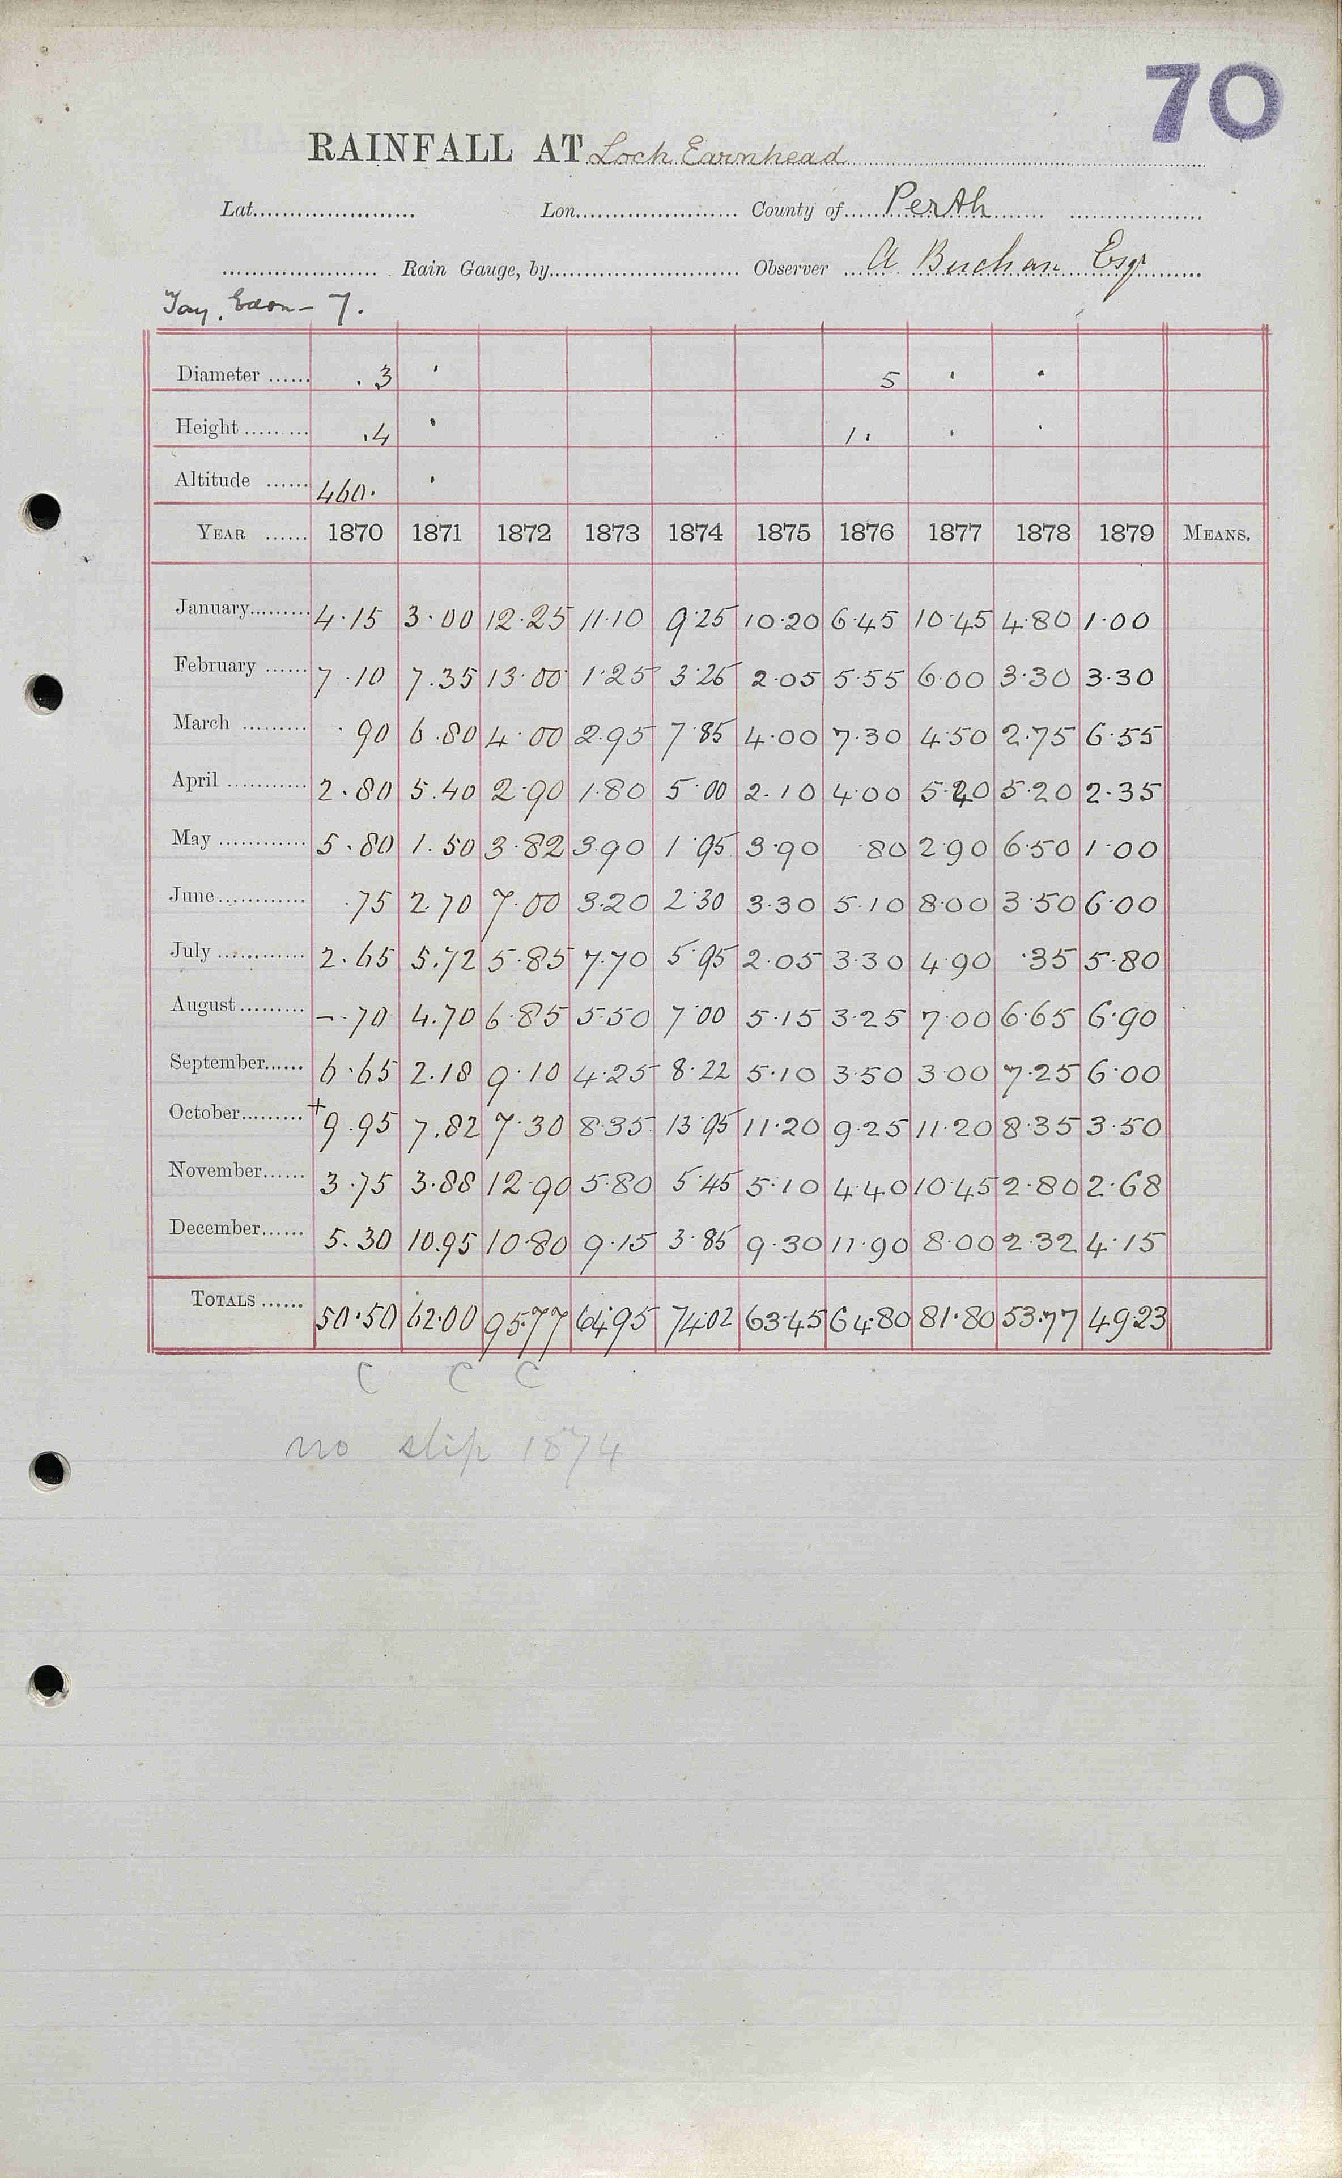 70
RAINFALL AT Loch Earnhead
Lat. Lon. County of Perth
Rain Gauge, by Observer A Buchan Esqr
Tay, Earn - 7.
Diameter .3 ' 5 ' '
Height .4 ' 1. ' '
Altitude 460. '
YEAR 1870 1871 1872 1873 1874 1875 1876 1877 1878 1879 MEANS.
January 4.15 3.00 12.25 11.10 9.25 10.20 6.45 10.45 4.80 1.00
February 7.10 7.35 13.00 1.25 3.25 2.05 5.55 6.00 3.30 3.30
March .90 6.80 4.00 2.95 7.85 4.00 7.30 4.50 2.75 6.55
April 2.80 5.40 2.90 1.80 5.00 2.10 4.00 5.40 5.20 2.35
May 5.80 1.50 3.82 3.90 1.95 3.90 .80 2.90 6.50 1.00
June .75 2.70 7.00 3.20 2.30 3.30 5.10 8.00 3.50 6.00
July 2.65 5.72 5.85 7.70 5.95 2.05 3.30 4.90 .35 5.80
August -.70 4.70 6.85 5.50 7.00 5.15 3.25 7.00 6.65 6.90
September 6.65 2.18 9.10 4.25 8.22 5.10 3.50 3.00 7.25 6.00
October +9.95 7.82 7.30 8.35 13.95 11.20 9.25 11.20 8.35 3.50
November 3.75 3.88 12.90 5.80 5.45 5.10 4.40 10.45 2.80 2.68
December 5.30 10.95 10.80 9.15 3.85 9.30 11.90 8.00 2.32 4.15
TOTALS 50.50 62.00 95.77 64.95 74.02 63.45 64.80 81.80 53.77 49.23
C C C
no slip 1874